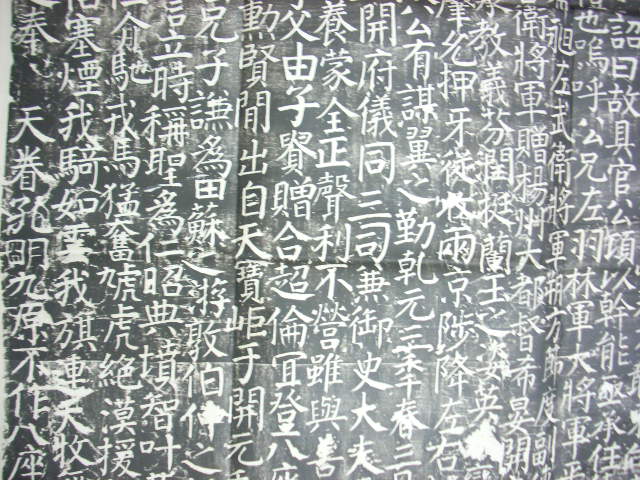 詔曰故具官公頃以幹能 承任
也嗚呼公兄左羽林軍大將軍平
昶左武衛將軍朔方節度副
衛將軍贈楊州大都督希晏開
教義芬潤挺蘭玉之姿英
肇允押牙從 兩京陟降左右
公有謀翼之勤乾元三年春三月
開府儀同三司兼御史大夫
養蒙全正聲利不營雖與善
父由子貴贈合超倫冝登八座
勲賢閒出自天寶岠于開元
兄子謙爲田蘇之遊敦伯仲之
言立時稱聖爲仁昭典墳智叶
介馳戎馬猛奮虓虎絶漠援
塞煙我騎如雲我旗連天牧
奉 天眷孔明九原不作八座